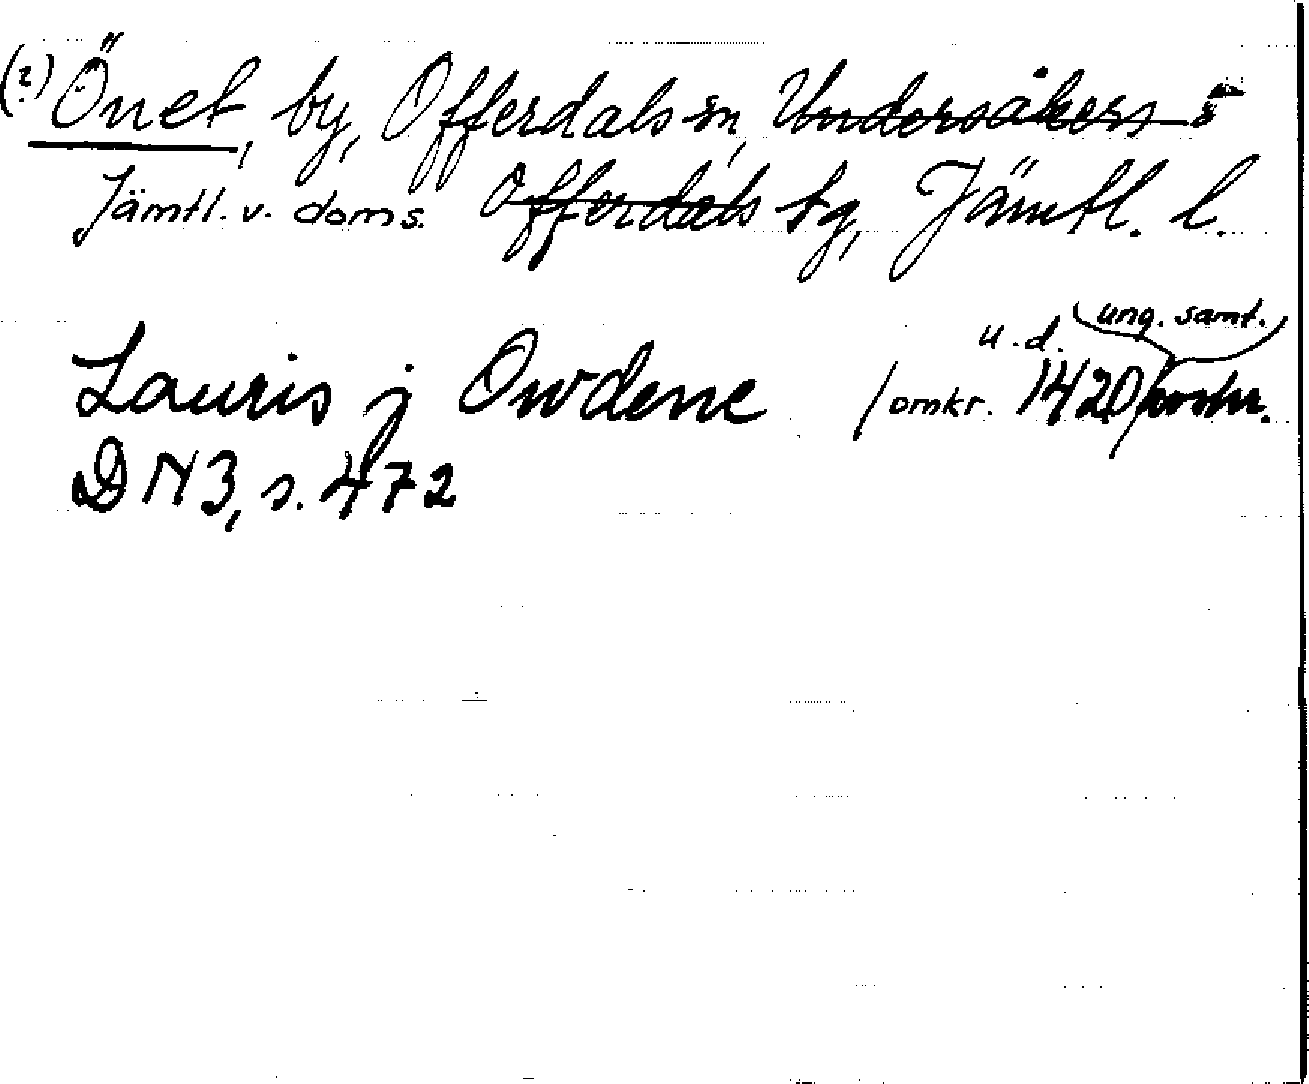 (?) Önet, by, Offerdals sn, Undersåkers
Jämtl. v. doms. Offerdals tg, Jämtl. l.
u.d. ung. samt.
Lauris j Owdene /omkr. 1420/
DN 3, s. 472